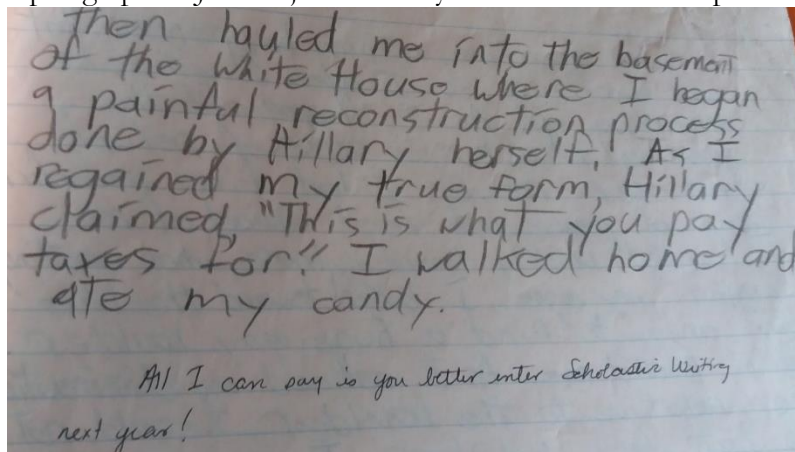 then hauled me into the basement
of the White House where I began
a painful reconstruction process
done by Hillary herself. As I
regained my true form, Hillary
claimed, "This is what you pay
taxes for!" I walked home and
ate my candy.
All I can say is you better enter Scholastic Writing
next year!